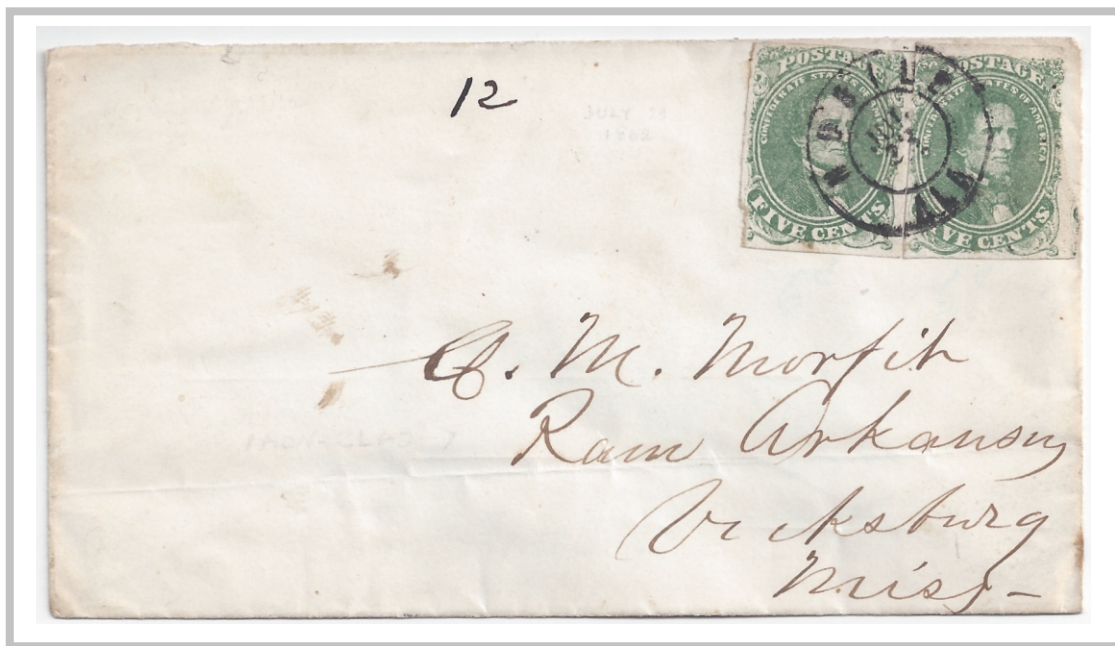 12
JULY 29
1862
POSTAGE
CONFEDERATE STATES OF
FIVE CENTS
POSTAGE
STATES OF AMERICA
VE CENTS
MOBILE
ALA
C. M. Morfit
Ram Arkansas
Vicksburg
Miss-